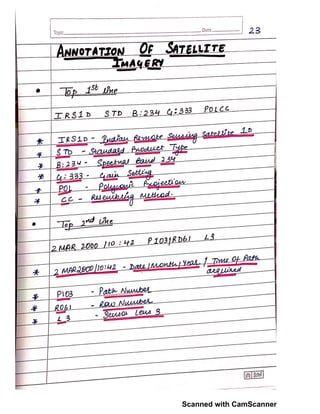 Topic
Date
23
ANNOTATION OF SATELLITE
IMAGERY
• Top 1st line
IRS1D STD B:234 G:333 POLCC
* IRS1D - Indian Remote Sensing Satellite 1D
* STD - Standard Product Type
* B:234 - Spectral Band 234
* G:333 - Gain Setting
* POL - Polyconic Projection
* CC - Resembling Method.
• Top 2nd line
2 MAR 2000 /10:42 P103/RD61 L3
* 2 MAR2000/10:42 - Date/Month/Year / Time of Path
acquired
* P103 - Path Number
* R061 - Row Number
* L3 - Sensor Lens 3
Scanned with CamScanner